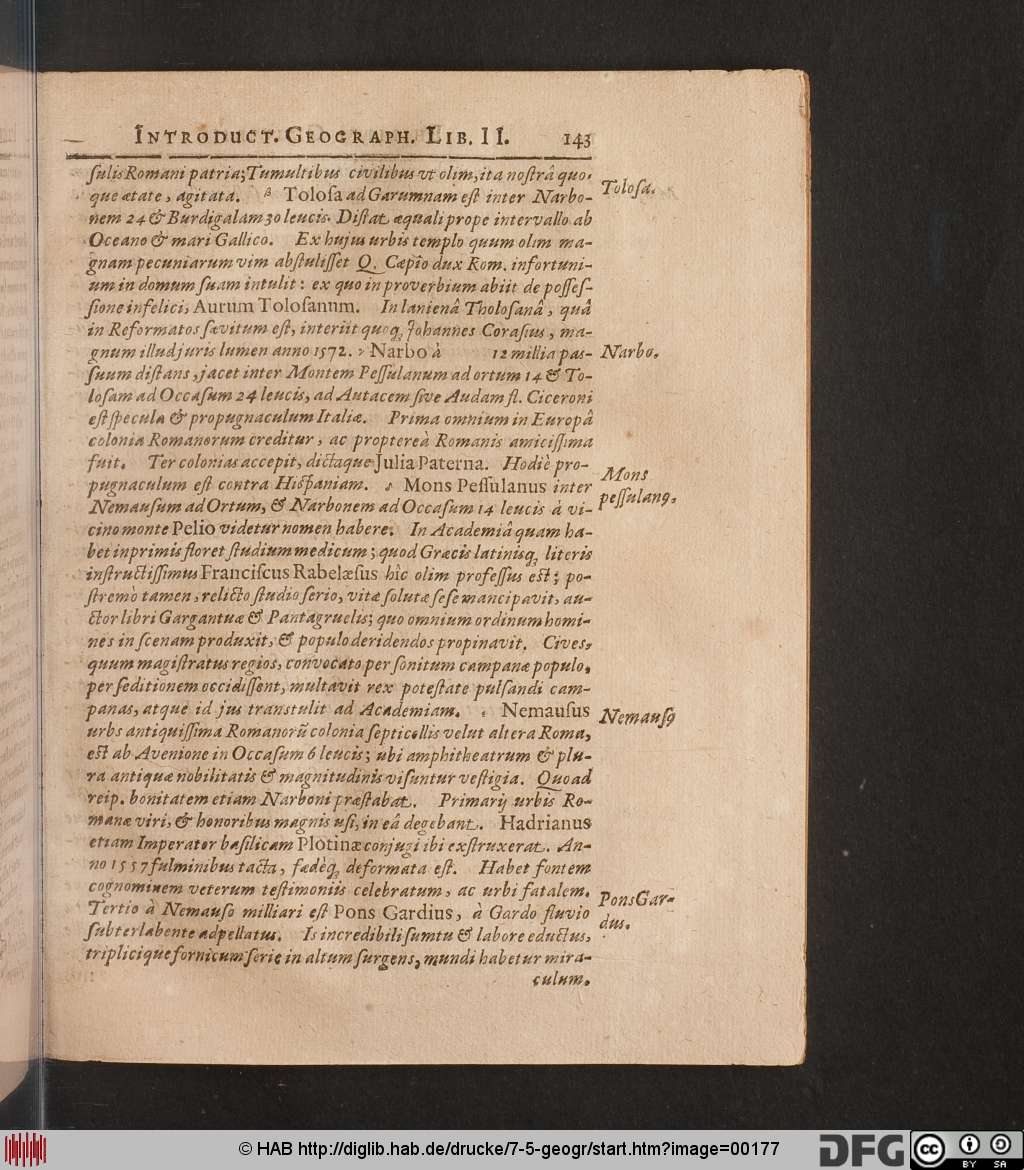 INTRODUCT. GEOGRAPH. LIB. II. 143
ſulis Romani patria; Tumultibus civilibus ut olim, ita noſtrâ quo-
que ætate, agitata. β Toloſa ad Garumnam eſt inter Narbo-
Toloſa.
nem 24 & Burdigalam 30 leucis. Diſtat æquali prope intervallo ab
Oceano & mari Gallico. Ex hujus urbis templo quum olim ma-
gnam pecuniarum vim abſtuliſſet Q. Cæpio dux Rom. infortuni-
um in domum ſuam intulit: ex quo in proverbium abiit de poſſeſ-
ſione infelici, Aurum Toloſanum. In lanienâ Tholoſanâ, quâ
in Reformatos ſævitum eſt, interiit quoq; Johannes Coraſius, ma-
gnum illud juris lumen anno 1572. γ Narbo à 12 millia paſ-
Narbo.
ſuum diſtans, jacet inter Montem Peſſulanum ad ortum 14 & To-
loſam ad Occaſum 24 leucis, ad Autacem ſive Audam fl. Ciceroni
eſt ſpecula & propugnaculum Italiæ. Prima omnium in Europâ
colonia Romanorum creditur, ac proptereà Romanis amiciſſima
fuit. Ter colonias accepit, dictaque Julia Paterna. Hodiè pro-
pugnaculum eſt contra Hiſpaniam. δ Mons Peſſulanus inter
Mons
peſſulanꝰ.
Nemauſum ad Ortum, & Narbonem ad Occaſum 14 leucis à vi-
cino monte Pelio videtur nomen habere. In Academiâ quam ha-
bet inprimis floret ſtudium medicum; quod Græcis latinisq; literis
inſtructiſſimus Franciſcus Rabelæſus hìc olim profeſſus eſt; po-
ſtremò tamen, relicto ſtudio ſerio, vitæ ſolutæ ſeſe mancipavit, au-
ctor libri Gargantuæ & Pantagruelis; quo omnium ordinum homi-
nes in ſcenam produxit, & populo deridendos propinavit. Cives,
quum magiſtratus regios, convocato per ſonitum campanæ populo,
per ſeditionem occidiſſent, multavit rex poteſtate pulſandi cam-
panas, atque id jus transtulit ad Academiam. Nemauſus
Nemauſꝰ
urbs antiquiſſima Romanorũ colonia ſepticollis velut altera Roma,
eſt ab Avenione in Occaſum 6 leucis; ubi amphitheatrum & plu-
ra antiquæ nobilitatis & magnitudinis viſuntur veſtigia. Quoad
reip. bonitatem etiam Narboni præſtabat. Primarij urbis Ro-
manæ viri, & honoribus magnis uſi, in eâ degebant. Hadrianus
etiam Imperator baſilicam Plotinæ conjugi ibi exſtruxerat. An-
no 1557 fulminibus tacta, fædèq; deformata eſt. Habet fontem
cognominem veterum teſtimoniis celebratum, ac urbi fatalem.
Tertio à Nemauſo milliari eſt Pons Gardius, à Gardo fluvio
Pons Gar-
dus.
ſubterlabente adpellatus. Is incredibili ſumtu & labore eductus,
triplicique fornicum ſerie in altum ſurgens, mundi habetur mira-
culum.
© HAB http://diglib.hab.de/drucke/7-5-geogr/start.htm?image=00177
DFG
cc BY SA